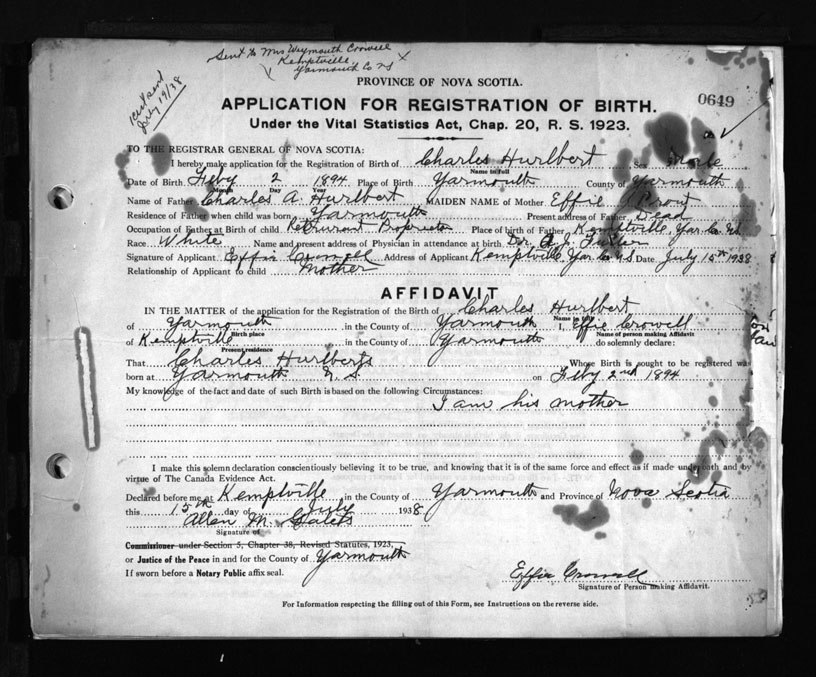 Sent to Mrs Weymouth Crowell
Kemptville
Yarmouth Co N S
July 19/38
PROVINCE OF NOVA SCOTIA.
0649
APPLICATION FOR REGISTRATION OF BIRTH.
Under the Vital Statistics Act, Chap. 20, R. S. 1923.
TO THE REGISTRAR GENERAL OF NOVA SCOTIA:
I hereby make application for the Registration of Birth of Charles Hurlbert Sex Male
Name in full
Date of Birth Feby 2 1894 Place of Birth Yarmouth County of Yarmouth
Month Day Year
Name of Father Charles A. Hurlbert MAIDEN NAME of Mother Effie
Residence of Father when child was born Yarmouth Present address of Father Dead
Occupation of Father at Birth of child Restaurant Proprietor Place of birth of Father Kemptville Yar Co NS
Race White Name and present address of Physician in attendance at birth Dr. A. J. Fuller
Signature of Applicant Effie Crowell Address of Applicant Kemptville, Yar Co N S Date July 15th 1938
Relationship of Applicant to child Mother
AFFIDAVIT
IN THE MATTER of the application for the Registration of the Birth of Charles Hurlbert
Name in full
of Yarmouth in the County of Yarmouth I, Effie Crowell
Birth place Name of person making Affidavit
of Kemptville in the County of Yarmouth do solemnly declare:
Present residence
That Charles Hurlbert Whose Birth is sought to be registered was
born at Yarmouth N. S. on Feby 2nd 1894
My knowledge of the fact and date of such Birth is based on the following Circumstances:
I am his mother
I make this solemn declaration conscientiously believing it to be true, and knowing that it is of the same force and effect as if made under oath and by
virtue of The Canada Evidence Act.
Declared before me at Kemptville in the County of Yarmouth and Province of Nova Scotia
this 15th day of July 1938
Allen M.
Signature of
Commissioner under Section 5, Chapter 38, Revised Statutes, 1923,
or Justice of the Peace in and for the County of Yarmouth
If sworn before a Notary Public affix seal.
Effie Crowell
Signature of Person making Affidavit.
For Information respecting the filling out of this Form, see Instructions on the reverse side.